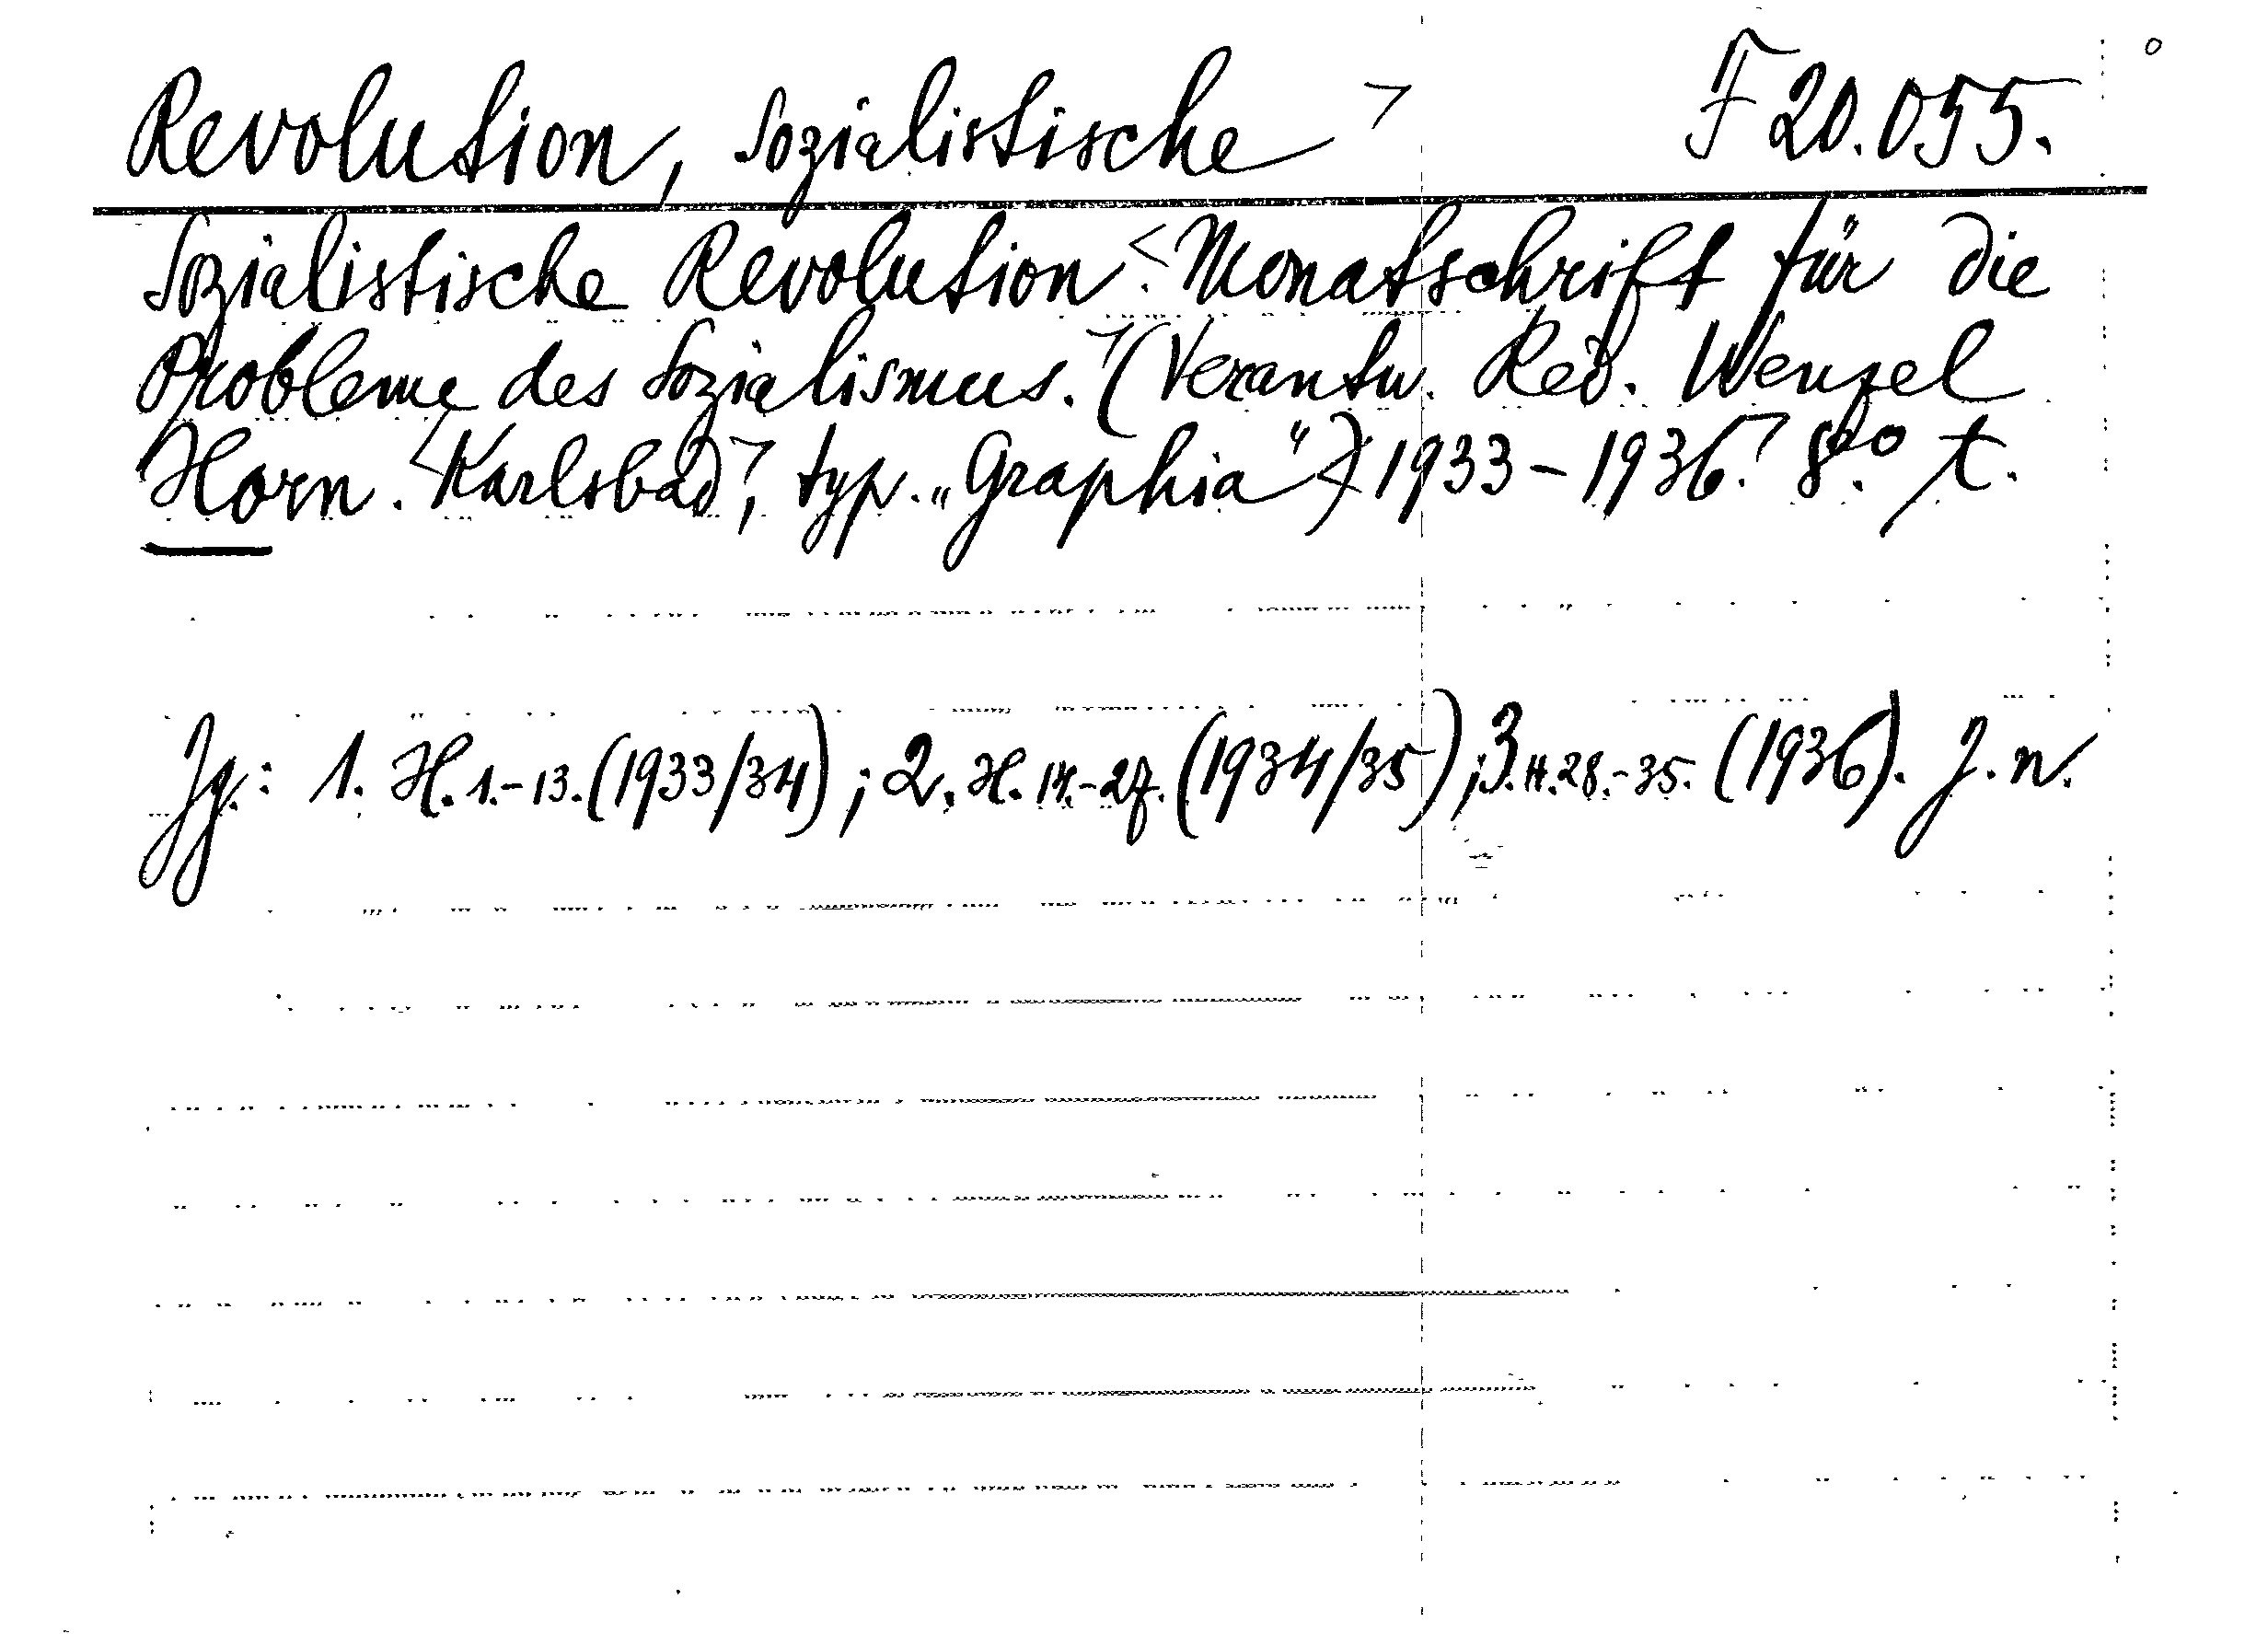 Revolution, Sozialistische ⁊ F 20.055.
Sozialistische Revolution. < Monatschrift für die
Probleme des Sozialismus. ⁊ (Verantw. Red. Wenzel
Horn. < Karlsbad ⁊, typ. „Graphia“) < 1933–1936. ⁊ 8.° t.
Jg.: 1. H. 1.–13. (1933/34); 2. H. 14.–27. (1934/35); 3. H. 28.–35. (1936). J. n.